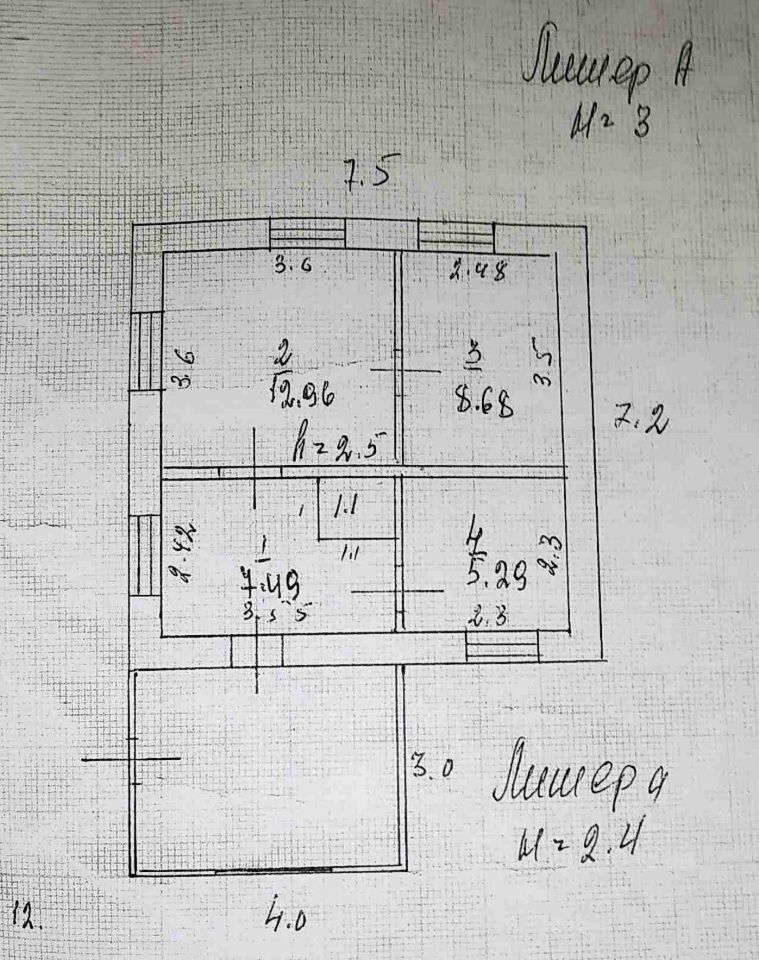 Литер А
Н = 3
7.5
3.6
2.48
3.6
2
12.96
3
8.68
3.5
7.2
h = 2.5
2.42
1
1.1
1.1
1
7.49
3.55
4
5.29
2.3
2.3
3.0
Литер а
Н = 2.4
12.
4.0